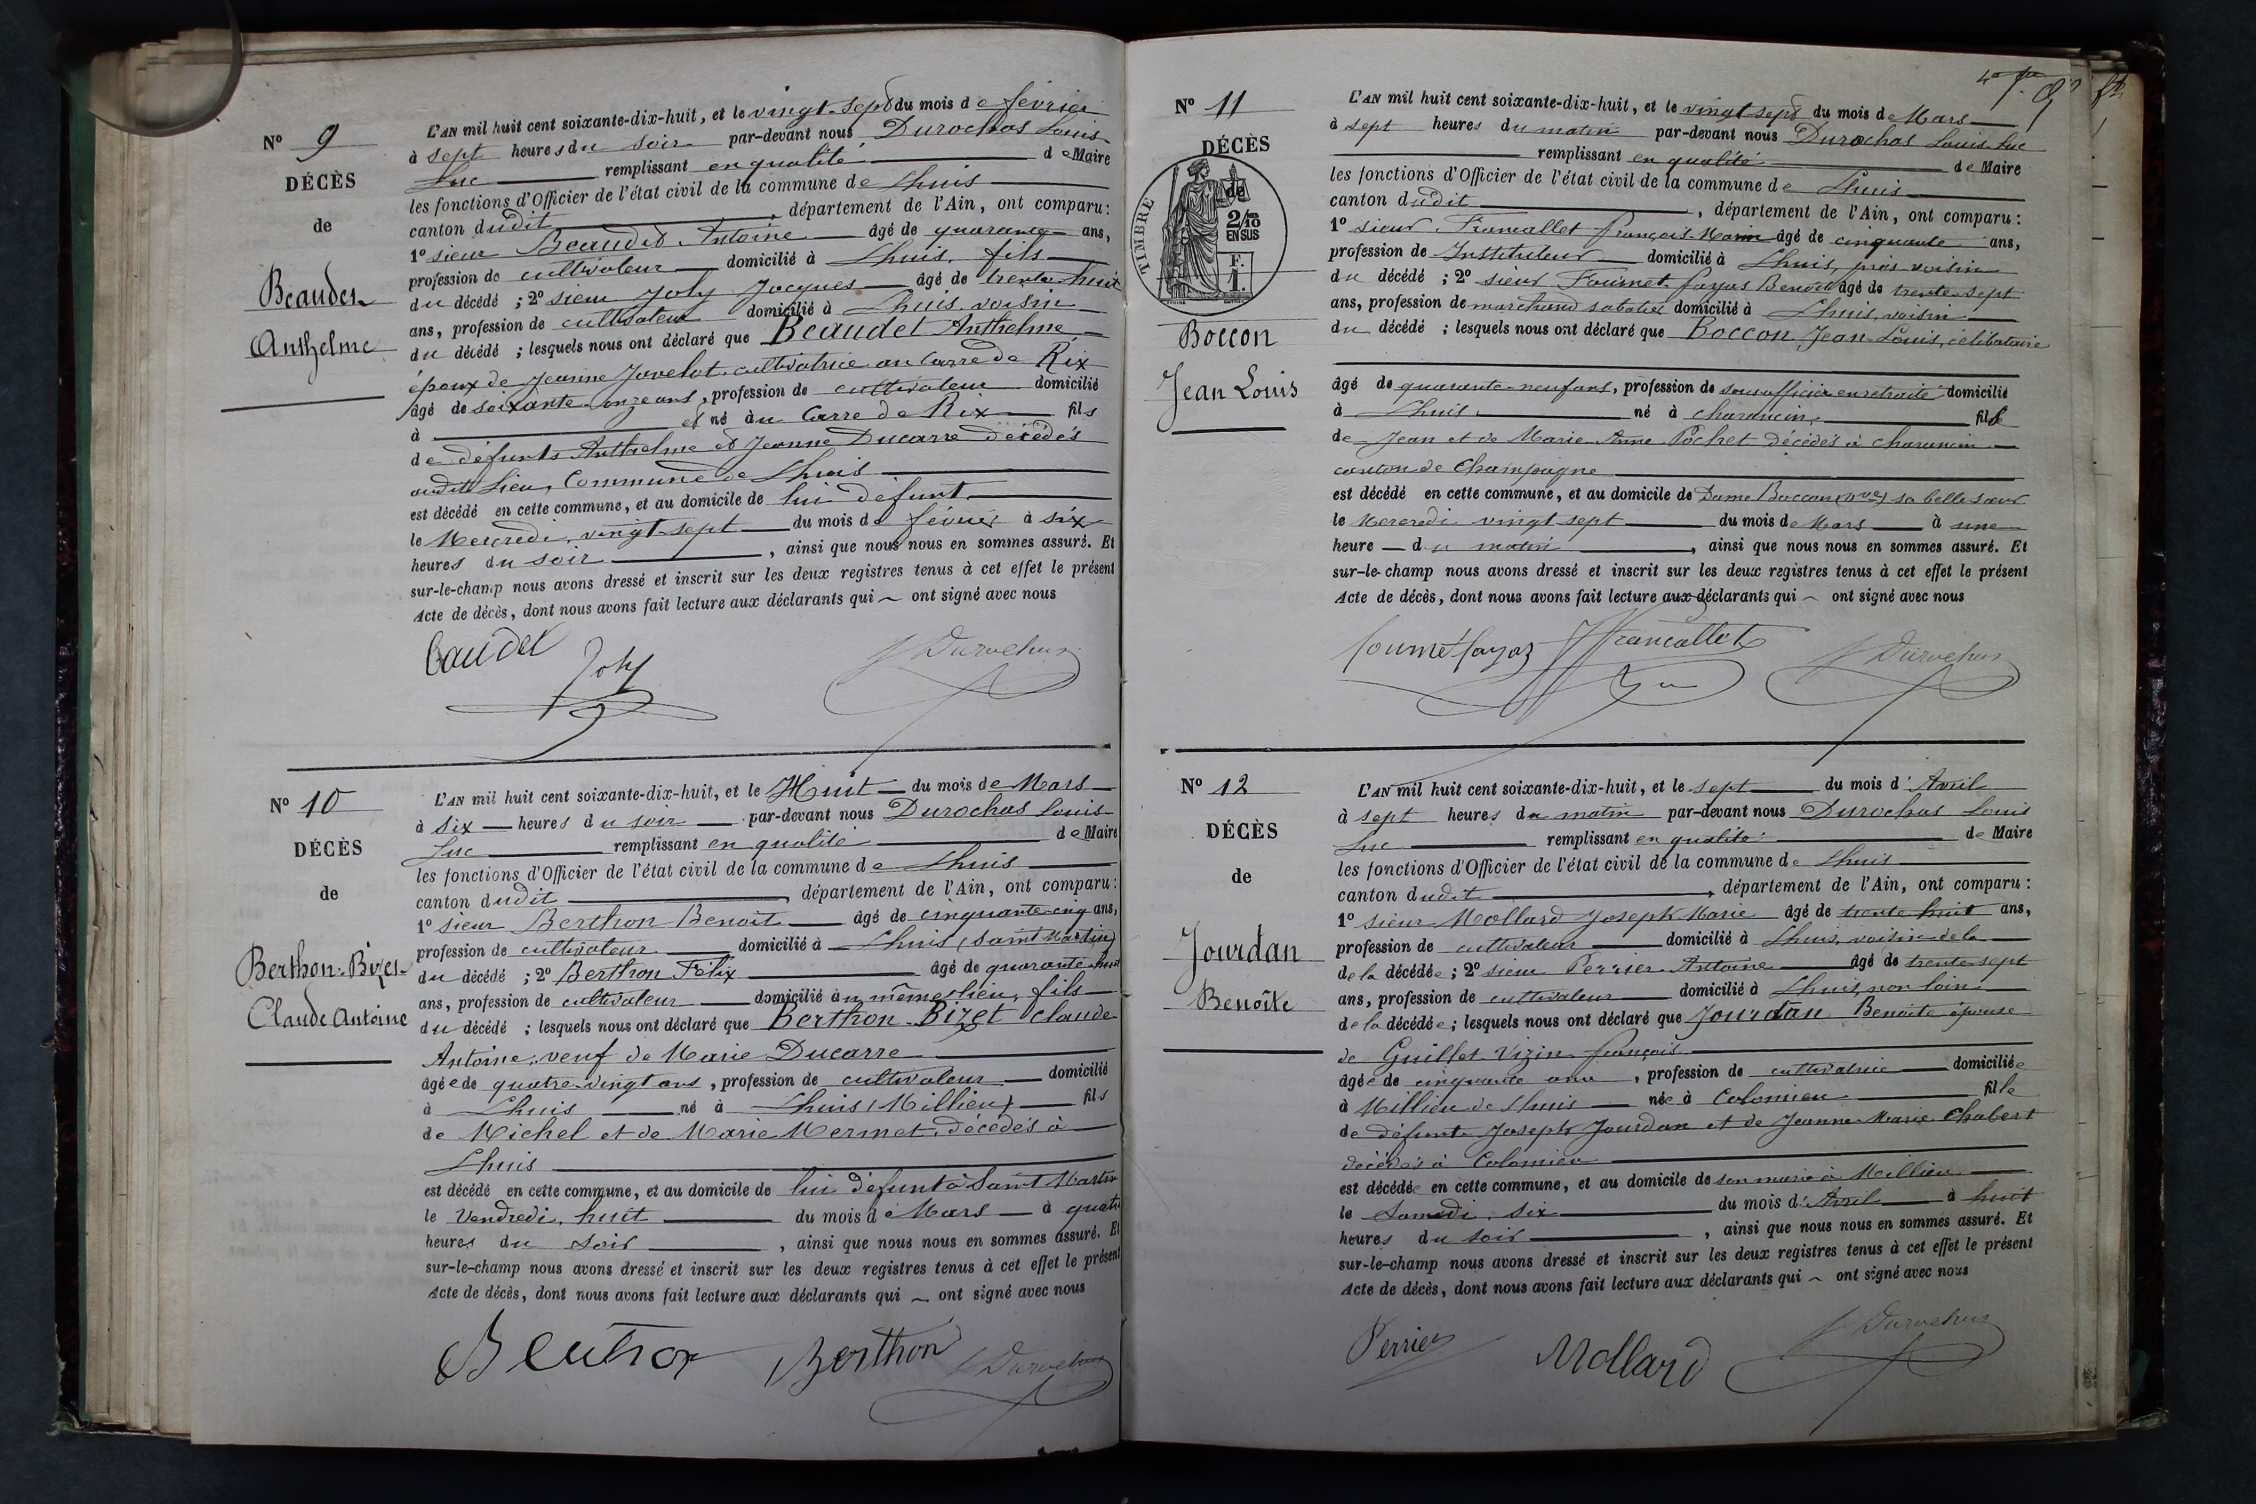 N° 9
DÉCÈS
de
Beaudet
Anthelme
L'AN mil huit cent soixante-dix-huit, et le vingt-sept du mois de février
à sept heures du soir par-devant nous Durochas Louis
Luc remplissant en qualité de Maire
les fonctions d'Officier de l'état civil de la commune de Lhuis
canton dudit, département de l'Ain, ont comparu:
1° sieur Beaudet Antoine âgé de quarante ans,
profession de cultivateur domicilié à Lhuis, fils
du décédé ; 2° sieur Joly Jacques âgé de trente huit
ans, profession de cultivateur domicilié à Lhuis, voisin
du décédé ; lesquels nous ont déclaré que Beaudet Anthelme
époux de Jeanine Javelot cultivatrice au Carre de Rix
âgé de soixante-onze ans, profession de cultivateur domicilié
à et né au Carre de Rix fils
de défunts Anthelme et Jeanne Ducarre décédés
audit Lieu, Commune de Lhuis
est décédé en cette commune, et au domicile de lui défunt
le Mercredi, vingt-sept du mois de février à six
heures du soir, ainsi que nous nous en sommes assuré. Et
sur-le-champ nous avons dressé et inscrit sur les deux registres tenus à cet effet le présent
Acte de décès, dont nous avons fait lecture aux déclarants qui ~ ont signé avec nous
Baudet Joly Durochas
N° 10
DÉCÈS
de
Berthon-Bizet
Claude Antoine
L'AN mil huit cent soixante-dix-huit, et le Huit du mois de Mars
à six heures du soir par-devant nous Durochas Louis
Luc remplissant en qualité de Maire
les fonctions d'Officier de l'état civil de la commune de Lhuis
canton dudit, département de l'Ain, ont comparu:
1° sieur Berthon Benoit âgé de cinquante-cinq ans,
profession de cultivateur domicilié à Lhuis (Saint Martin)
du décédé ; 2° Berthon Félix âgé de quarante-huit
ans, profession de cultivateur domicilié au même lieu, fils
du décédé ; lesquels nous ont déclaré que Berthon-Bizet Claude
Antoine, veuf de Marie Ducarre
âgée de quatre-vingt ans, profession de cultivateur domicilié
à Lhuis né à Lhuis (Millieu) fils
de Michel et de Marie Mermet, décédés à
Lhuis
est décédé en cette commune, et au domicile de lui défunt à Saint Martin
le Vendredi, huit du mois de Mars à quatre
heures du soir, ainsi que nous nous en sommes assuré. Et
sur-le-champ nous avons dressé et inscrit sur les deux registres tenus à cet effet le présent
Acte de décès, dont nous avons fait lecture aux déclarants qui ~ ont signé avec nous
Berthon Berthon Durochas
N° 11
DÉCÈS
de
TIMBRE
2/10
EN SUS
F.
1.
Boccon
Jean Louis
L'AN mil huit cent soixante-dix-huit, et le vingt sept du mois de Mars
à sept heures du matin par-devant nous Durochas Louis Luc
remplissant en qualité de Maire
les fonctions d'Officier de l'état civil de la commune de Lhuis
canton dudit, département de l'Ain, ont comparu:
1° sieur Francallet François-Marie âgé de cinquante ans,
profession de Instituteur domicilié à Lhuis, près voisin
du décédé ; 2° sieur Fournet-fayas Benoit âgé de trente-sept
ans, profession de marchand sabotier domicilié à Lhuis, voisin
du décédé ; lesquels nous ont déclaré que Boccon Jean-Louis, célibataire
âgé de quarante-neuf ans, profession de sous officier en retraite domicilié
à Lhuis né à Charancin fils
de Jean et de Marie-Anne Pochet décédés à Charancin
canton de Champagne
est décédé en cette commune, et au domicile de Dame Boccon (Vve) sa belle sœur
le Mercredi vingt sept du mois de Mars à une
heure du matin, ainsi que nous nous en sommes assuré. Et
sur-le-champ nous avons dressé et inscrit sur les deux registres tenus à cet effet le présent
Acte de décès, dont nous avons fait lecture aux déclarants qui ~ ont signé avec nous
Francallet Durochas
N° 12
DÉCÈS
de
Jourdan
Benoîte
L'AN mil huit cent soixante-dix-huit, et le sept du mois d'Avril
à sept heures du matin par-devant nous Durochas Louis
Luc remplissant en qualité de Maire
les fonctions d'Officier de l'état civil de la commune de Lhuis
canton dudit, département de l'Ain, ont comparu:
1° sieur Mollard Joseph Marie âgé de trente huit ans,
profession de cultivateur domicilié à Lhuis, voisin de la
de la décédée ; 2° sieur Perrier Antoine âgé de trente-sept
ans, profession de cultivateur domicilié à Lhuis, non loin
de la décédée ; lesquels nous ont déclaré que Jourdan Benoîte épouse
de Guillet Vizin François
âgée de cinquante ans, profession de cultivatrice domiciliée
à Millieu de Lhuis née à Colomieu fille
de défunts Joseph Jourdan et de Jeanne-Marie Chabert
décédés à Colomieu
est décédée en cette commune, et au domicile de son mari à Millieu
le Samedi, six du mois d'Avril à huit
heures du soir, ainsi que nous nous en sommes assuré. Et
sur-le-champ nous avons dressé et inscrit sur les deux registres tenus à cet effet le présent
Acte de décès, dont nous avons fait lecture aux déclarants qui ~ ont signé avec nous
Perrier Mollard Durochas